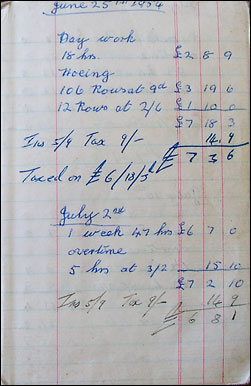 June 25th 1954
Day work
18 hrs. £2 8 9
Hoeing
106 Rows at 9d £3 19 6
12 Rows at 2/6 £1 10 0
£7 18 3
Ins 5/9 Tax 9/- 14 9
£7 3 6
Taxed on £6/18/3d
July 2nd
1 week 47 hrs £6 7 0
overtime
5 hrs at 3/2 15 10
£7 2 10
Ins 5/9 Tax 9/- 14 9
£6 8 1